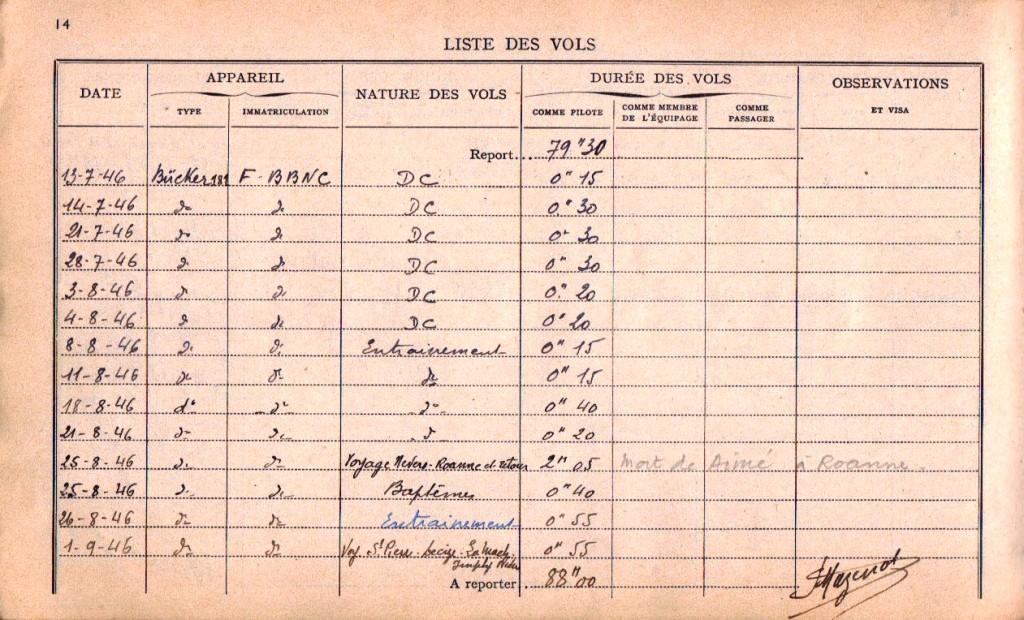 14
LISTE DES VOLS
DATE APPAREIL NATURE DES VOLS DURÉE DES VOLS OBSERVATIONS ET VISA
TYPE IMMATRICULATION COMME PILOTE COMME MEMBRE DE L'ÉQUIPAGE COMME PASSAGER
Report... 79 "30
13-7-46 Bücker 181 F-BBNC DC 0" 15
14-7-46 d° d° DC 0" 30
21-7-46 d° d° DC 0" 30
28-7-46 d° d° DC 0" 30
3-8-46 d° d° DC 0" 20
4-8-46 d° d° DC 0" 20
8-8-46 d° d° Entrainement 0" 15
11-8-46 d° d° d° 0" 15
18-8-46 d° d° d° 0" 40
21-8-46 d° d° d° 0" 20
25-8-46 d° d° Voyage Nevers-Roanne et retour 2" 05 Mort de Aimé à Roanne.
25-8-46 d° d° Baptêmes 0" 40
26-8-46 d° d° Entrainement 0" 55
1-9-46 d° d° Voy. St Pierre-Decize-La Mach. Imphy Nevers 0" 55
A reporter... 88"00